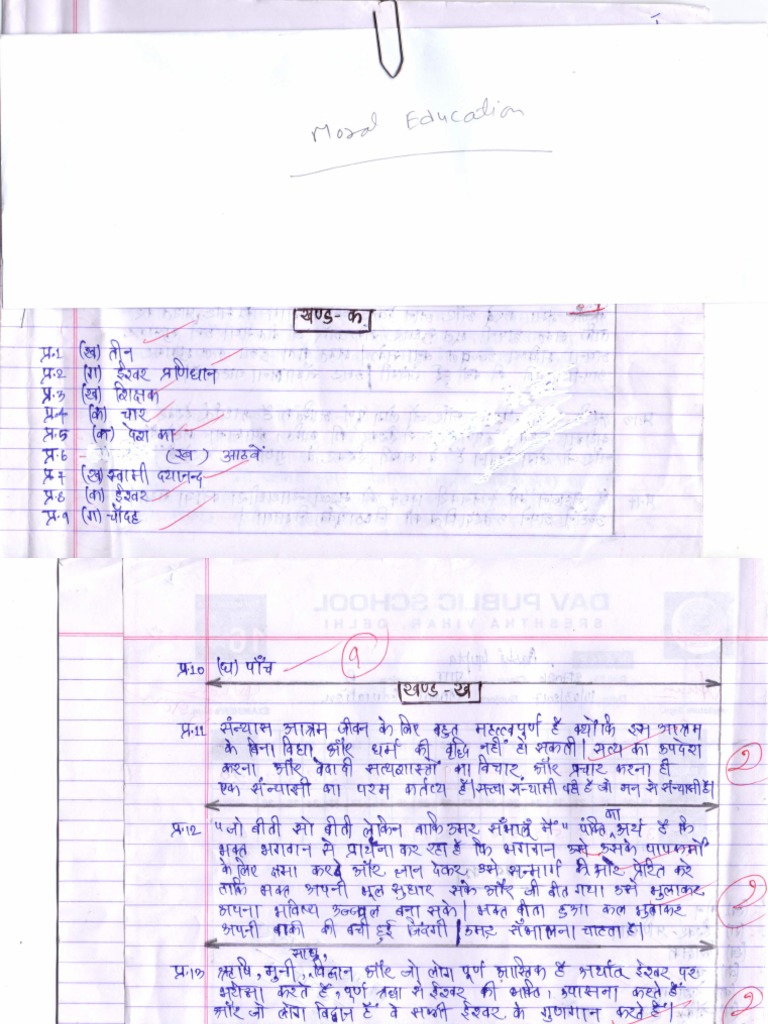 Moral Education
खण्ड-क
प्र.1 (ख) तीन
प्र.2 (ग) ईश्वर प्रणिधान
प्र.3 (ख) शिक्षक
प्र.4 (क) चार
प्र.5 (क) पेशे का
प्र.6 (ख) आठवें
प्र.7 (ख) स्वामी दयानन्द
प्र.8 (क) ईश्वर
प्र.9 (ग) चौदह
प्र.10 (घ) पाँच
9
खण्ड-ख
प्र.11 संन्यास आश्रम जीवन के लिए बहुत महत्वपूर्ण है क्योंकि इस आश्रम
के बिना विद्या और धर्म की वृद्धि नहीं हो सकती। सत्य का उपदेश
करना और वेदादी सत्यशास्त्रों का विचार और प्रचार करना ही
एक संन्यासी का परम कर्तव्य है। सच्चा संन्यासी वही है जो मन से संन्यासी है।
2
प्र.12 "जो बीती सो बीती लेकिन बाकि उमर संभालूँ मैं" पंक्ति का अर्थ है कि
भक्त भगवान से प्रार्थना कर रहा है कि भगवान उसे उसके पापकर्मों
के लिए क्षमा करदे और ज्ञान देकर उसे सन्मार्ग की ओर प्रेरित करे
ताकि भक्त अपनी भूल सुधार सके और जो बीत गया उसे भुलाकर
अपना भविष्य उज्ज्वल बना सके। भक्त बीता हुआ कल भुलाकर
अपनी बाकी की बची हुई जिंदगी / उमर संभालना चाहता है।
2
प्र.13 ऋषि, मुनी, साधू, विद्वान और जो लोग पूर्ण आस्तिक हैं अर्थात ईश्वर पर
भरोसा करते हैं, पूर्ण श्रद्धा से ईश्वर की भक्ति, उपासना करते हैं
और जो लोग विद्वान हैं वे सभी ईश्वर के गुणगान करते हैं।
2